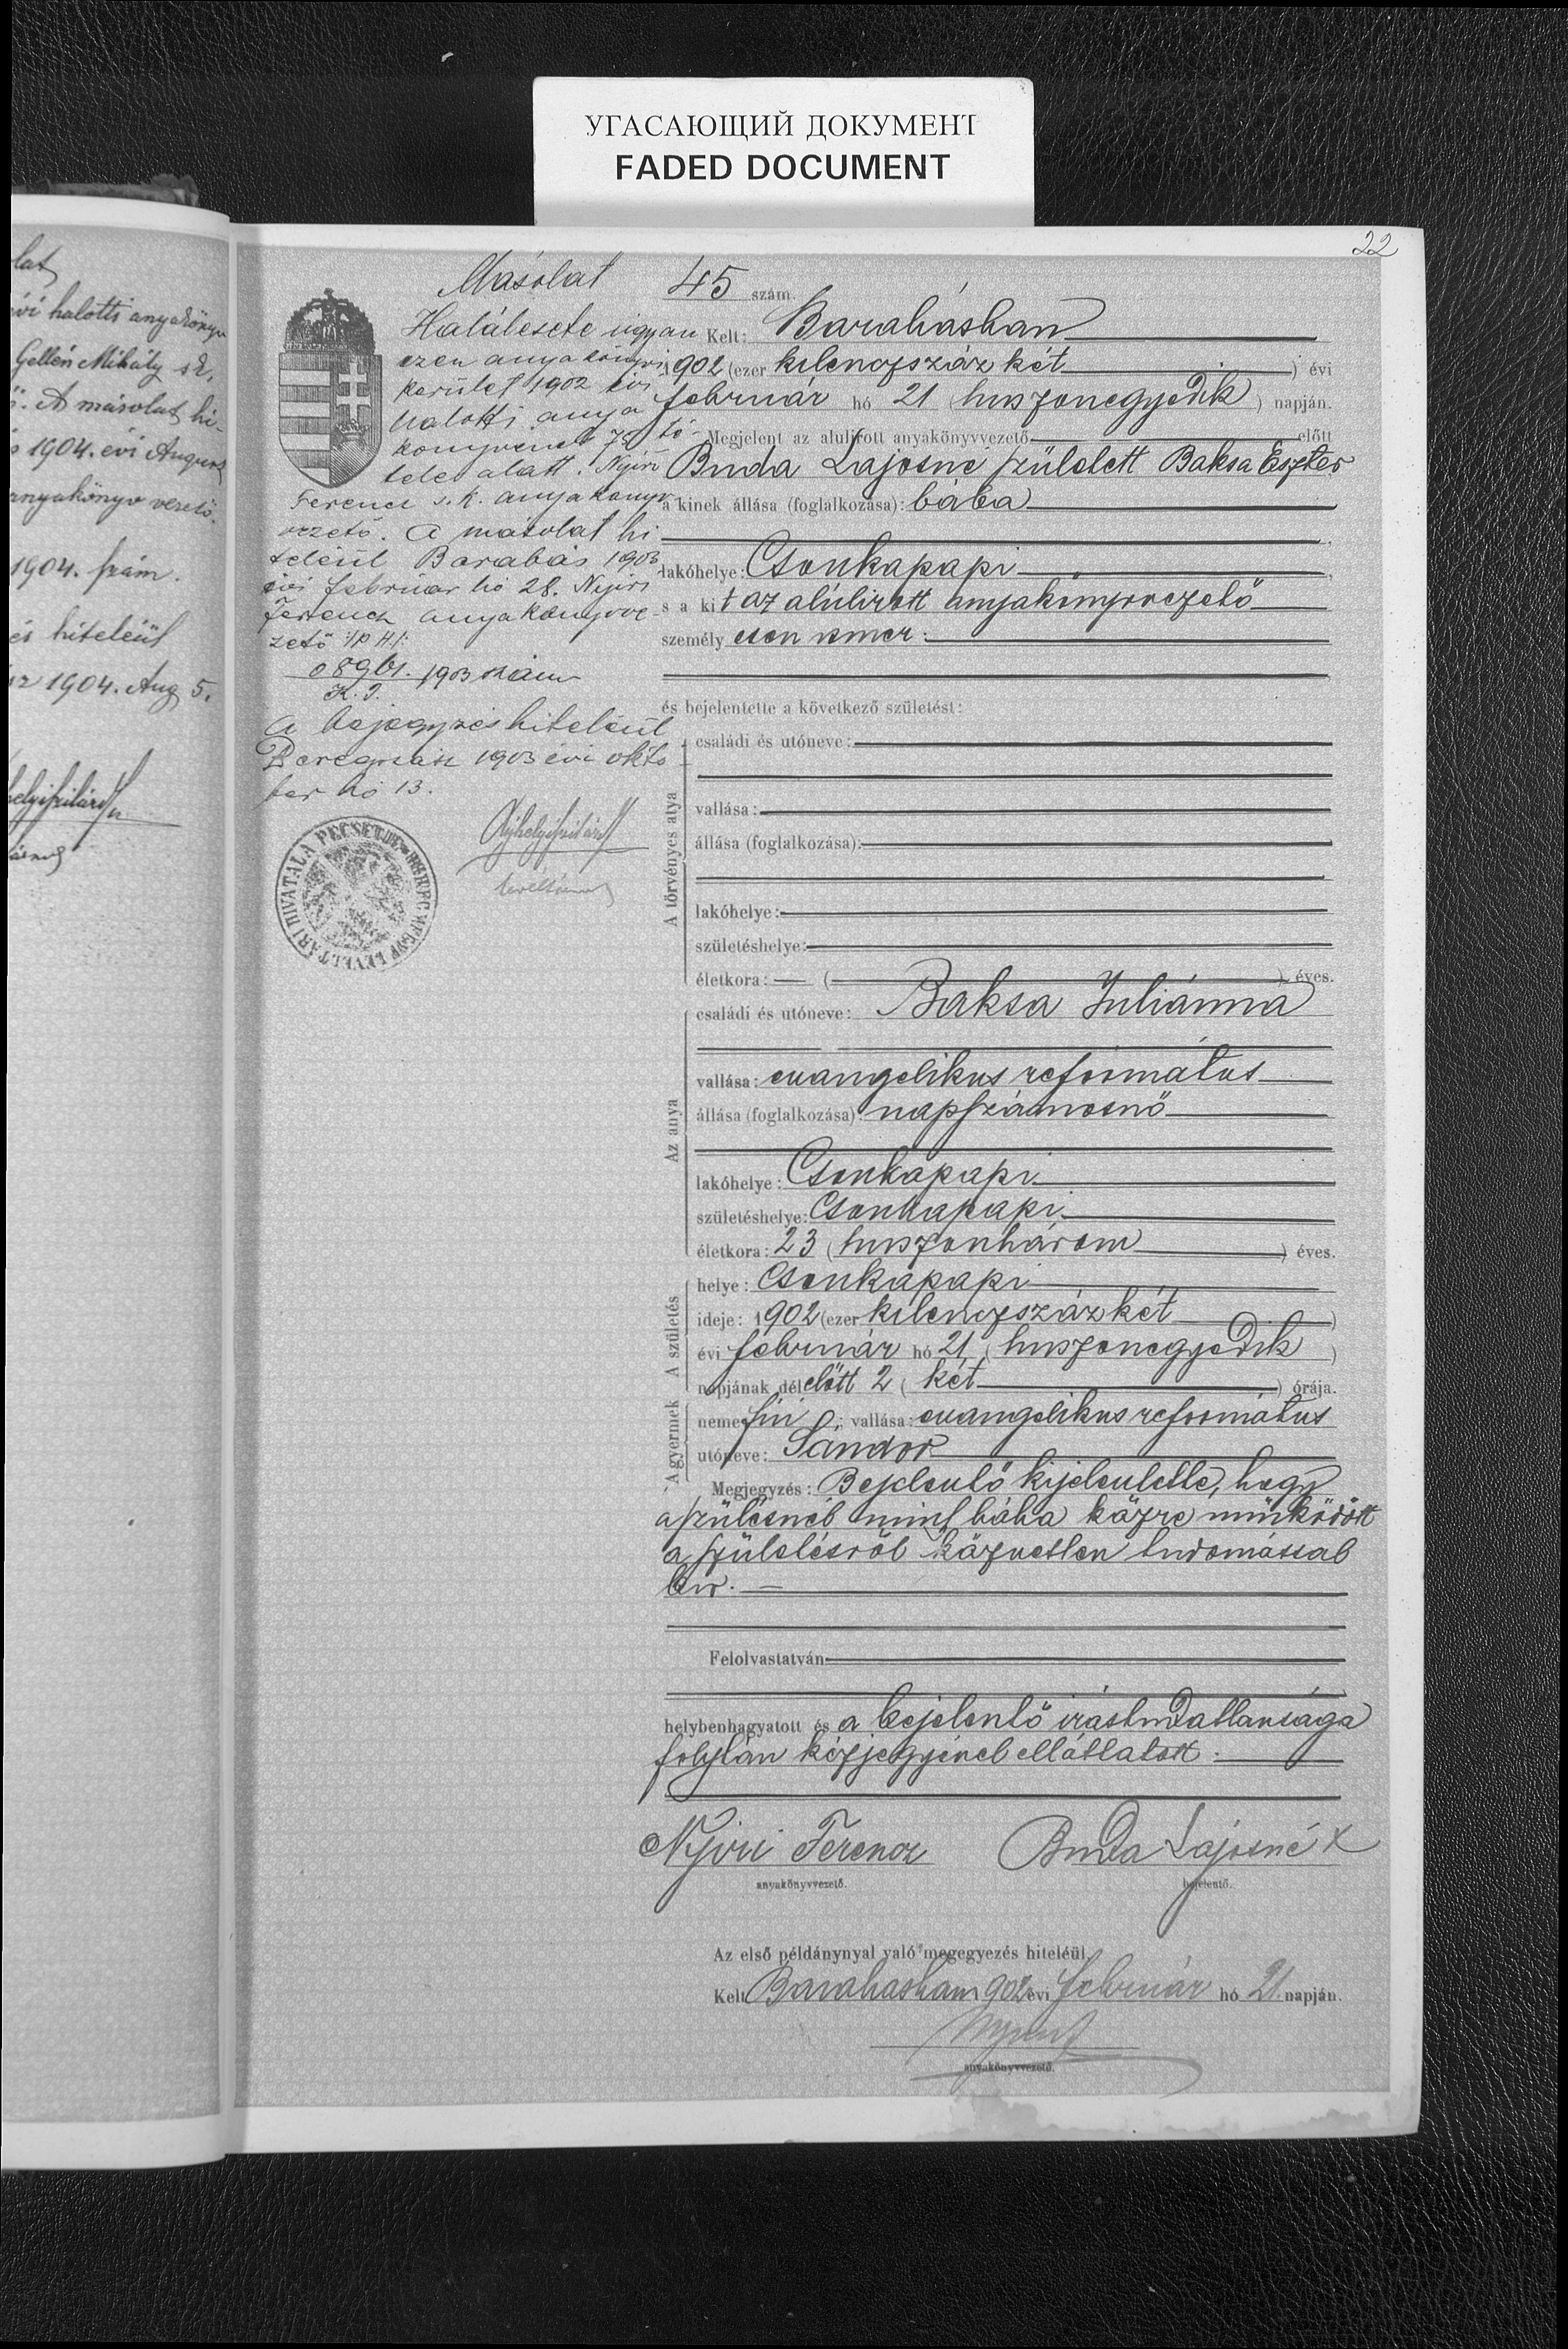 УГАСАЮЩИЙ ДОКУМЕНТ
FADED DOCUMENT
22
lat
évi halotti anyakönyv
Gellén Mihály sk.
ő. A másolat hi-
1904. évi August
anyakönyv vezető.
1904. szám.
és hiteléül
1904. Aug 5.
Másolat
Halálesete ugyan
ezen anyakönyvi
kerület 1902 évi
halotti anya
könyvének 75 té-
tele alatt. Nyiri
Ferencz s. k. anyakönyv
vezető. A másolat hi
teleül Barabás 1903
évi február hó 28. Nyiri
Ferencz anyakönyvve-
zető
1903 szám
A bejegyzés hiteléül
Beregszász 1903 évi októ
ber hó 13.
LEVÉLTÁRI HIVATALA PECSÉTJE
45 szám.
Kelt: Barabásban
1902 (ezer kilenczszáz két ) évi
február hó 21 (huszonegyedik) napján.
Megjelent az alulírott anyakönyvvezető előtt
Buda Lajosné született Baksa Eszter
a kinek állása (foglalkozása): bába
lakóhelye: Csonkapapi
s a kit az alúlirott anyakönyvvezető
személyesen ismer.
és bejelentette a következő születést:
A törvényes atya
családi és utóneve:
vallása:
állása (foglalkozása):
lakóhelye:
születéshelye:
életkora: ( ) éves.
Az anya
családi és utóneve: Baksa Juliánna
vallása: evangelikus református
állása (foglalkozása): napszámosnő
lakóhelye: Csonkapapi
születéshelye: Csonkapapi
életkora: 23 (huszonhárom ) éves.
A születés
helye: Csonkapapi
ideje: 1902 (ezer kilenczszáz két )
évi február hó 21 (huszonegyedik )
napjának délelőtt 2 (két ) órája.
A gyermek
neme: fiú; vallása: evangelikus református
utóneve: Sándor
Megjegyzés: Bejelentő kijelentette, hogy
a szülésnél mint bába közre működött
a születésről közvetlen tudomással
bir. —
Felolvastatván
helybenhagyatott és a bejelentő irástudatlansága
folytán kézjegyével ellátatott.
Nyiri Ferencz Buda Lajosné X
anyakönyvvezető. bejelentő.
Az első példánynyal való megegyezés hiteléül.
Kelt Barabásban 902 évi február hó 21 napján.
anyakönyvvezető.